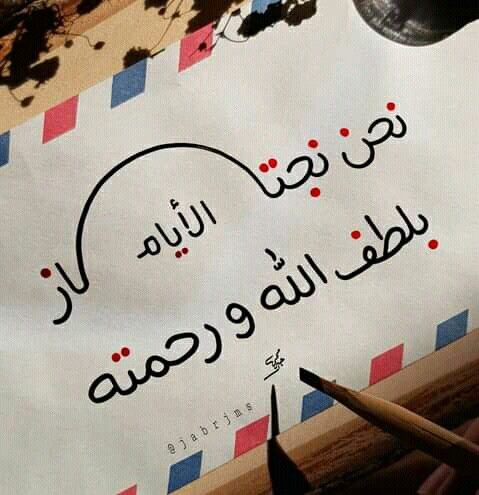 نحن نجتاز
الأيام
بلطف الله ورحمته
@jabrjms